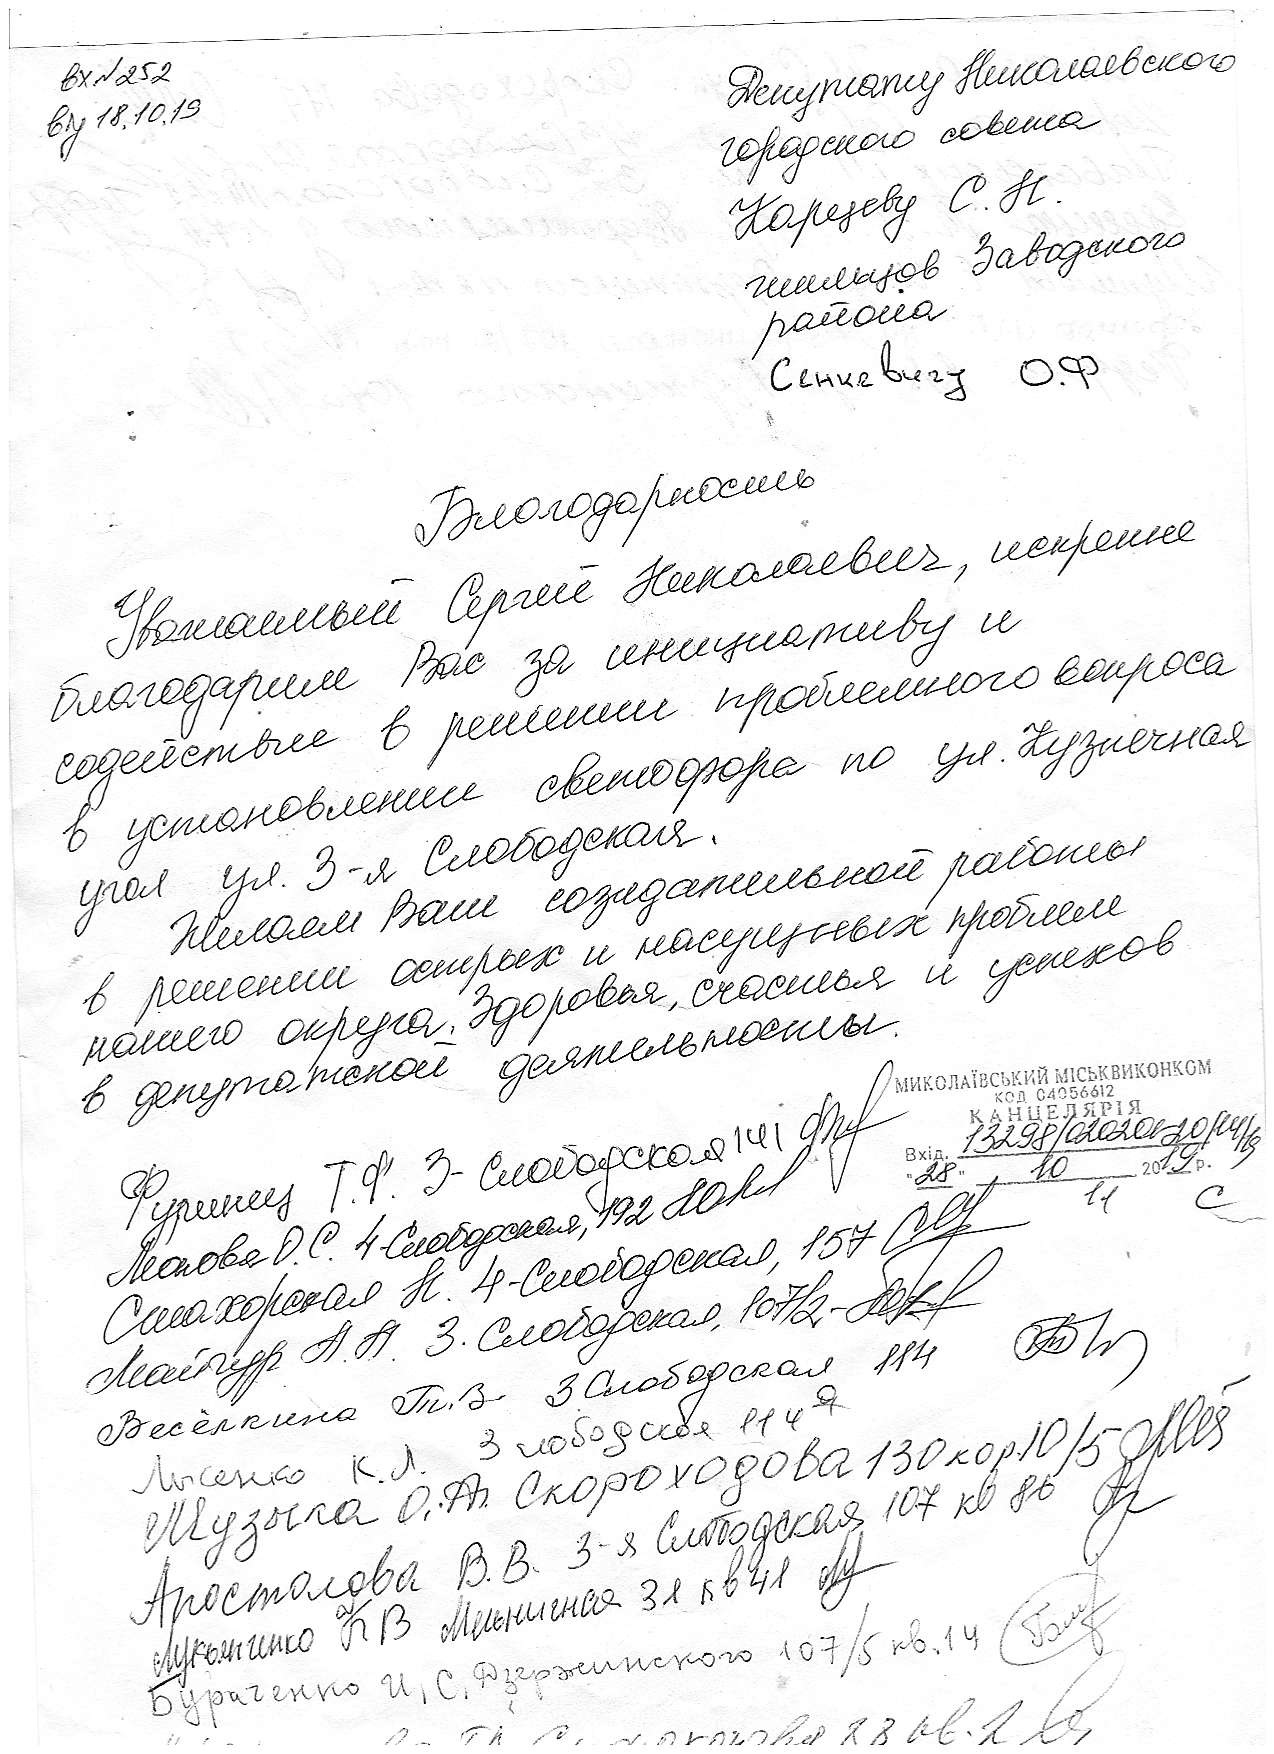 вх.№252
від 18.10.19
Депутату Николаевского
городского совета
Карцеву С. Н.
жильцов Заводского
района
Сенкевичу О.Ф
Благодарность
Уважаемый Сергей Николаевич, искренне
благодарим Вас за инициативу и
содействие в решении проблемного вопроса
в установлении светофора по ул. Кузнечная
угол ул. 3-я Слободская.
Желаем Вам созидательной работы
в решении острых и насущных проблем
нашего округа. Здоровья, счастья и успехов
в депутатской деятельности.
МИКОЛАЇВСЬКИЙ МІСЬКВИКОНКОМ
КОД 04056612
КАНЦЕЛЯРІЯ
Вхід. 13298/020201-20/14/19
"28" 10 2019 р.
11
Т.Ф. 3-Слободская 141
О.С. 4-Слободская, 192
Стахорская Н. 4-Слободская, 157
3. Слободская, 107/2
Весёлкина Т.В. 3 Слободская 114
Лысенко К.Л. 3 слободская 114а
Музыка О.А. Скороходова 130 кор.10/5
Апостолова В.В. 3-я Слободская 107 кв 86
Лукьянченко КВ Мельничная 31 кв 41
Бураченко И.С. Дзержинского 107/5 кв.14